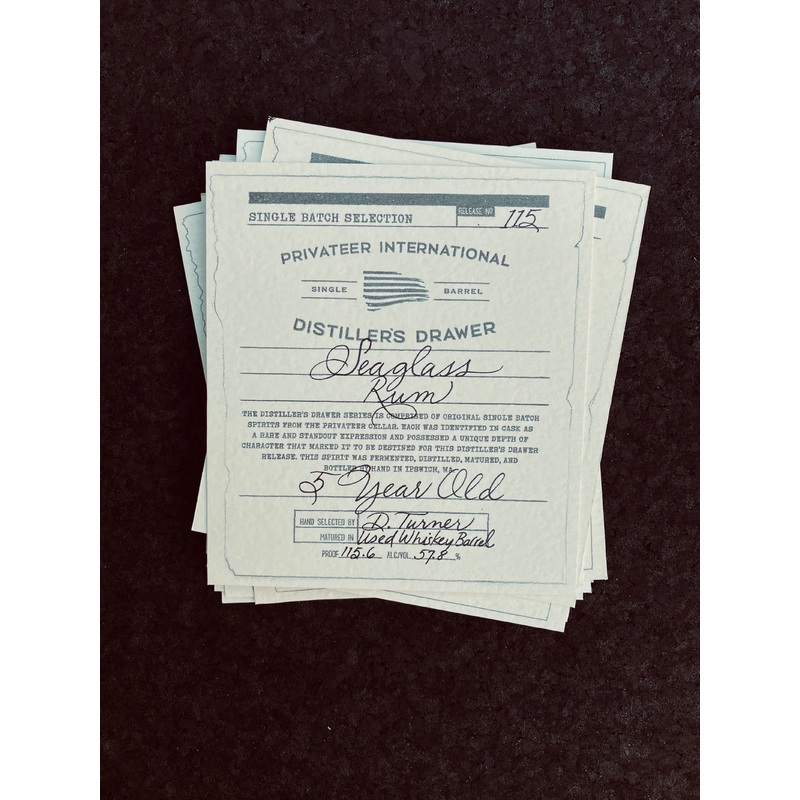 SINGLE BATCH SELECTION RELEASE NO 115
PRIVATEER INTERNATIONAL
SINGLE BARREL
DISTILLER'S DRAWER
Seaglass
Rum
THE DISTILLER'S DRAWER SERIES IS COMPRISED OF ORIGINAL SINGLE BATCH
SPIRITS FROM THE PRIVATEER CELLAR. EACH WAS IDENTIFIED IN CASK AS
A RARE AND STANDOUT EXPRESSION AND POSSESSED A UNIQUE DEPTH OF
CHARACTER THAT MARKED IT TO BE DESTINED FOR THIS DISTILLER'S DRAWER
RELEASE. THIS SPIRIT WAS FERMENTED, DISTILLED, MATURED, AND
BOTTLED BY HAND IN IPSWICH, MA.
5 Year Old
HAND SELECTED BY D. Turner
MATURED IN Used Whiskey Barrel
PROOF 115.6 ALC/VOL 57.8 %